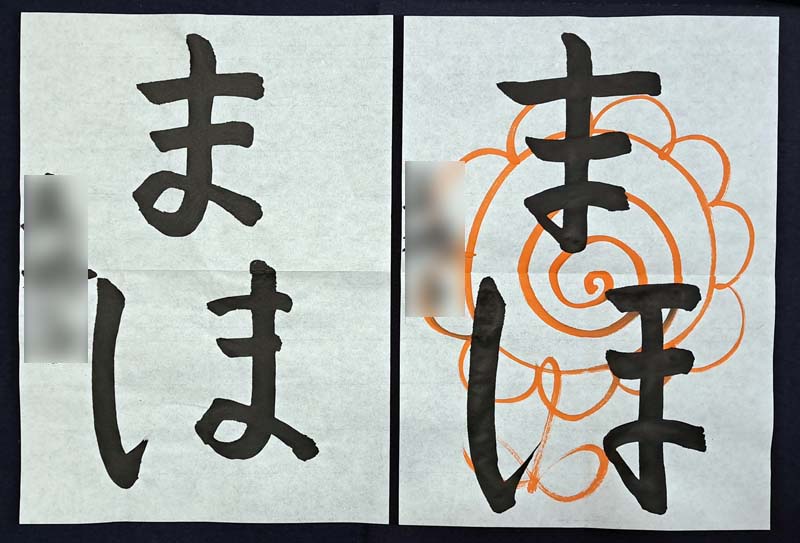 ま
ほ
ま
ほ